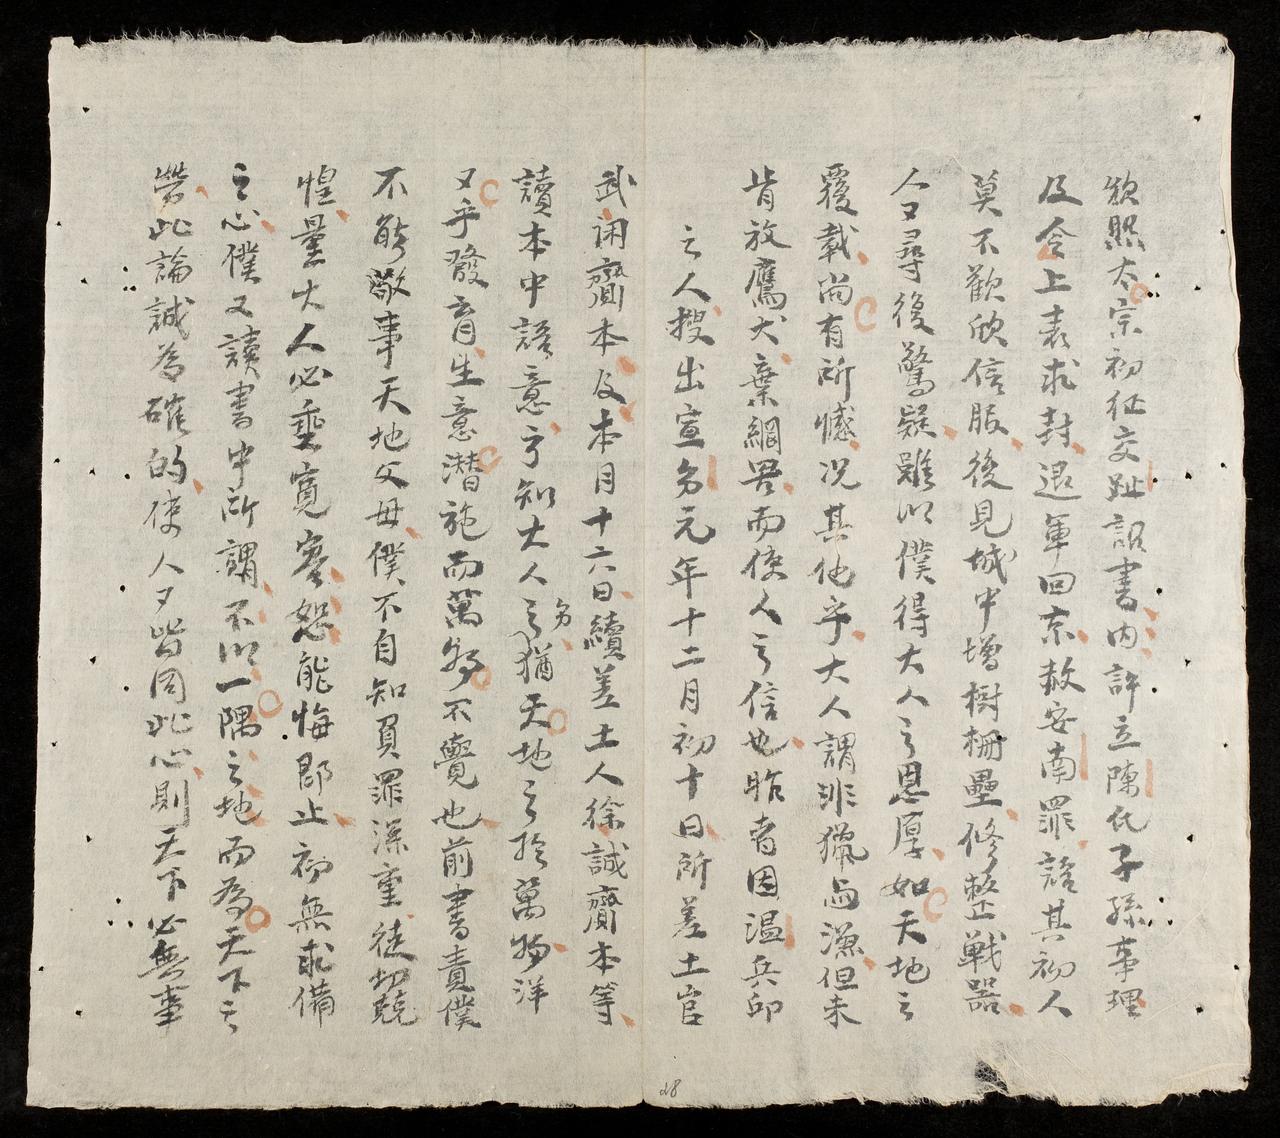 欽照太宗初征交趾詔書內許立陳氏子孫事理
及令上表求封退軍回京赦安南罪諭其初人
莫不歡欣信服後見城中增樹柵壘修整戰器
人又尋復驚疑雖以僕得大人之恩厚如天地之
覆載尚有所憾况其他乎大人謂非獵而漁但未
肯放鷹犬棄網罟而使人之信也昨者因溫兵卯
之人搜出宣身元年十二月初十日所差土官
武閑齎本及本月十六日續差土人徐誠齎本等
讀本中諸意方知大人之身猶天地之於萬物洋
又乎發育生意潛施而萬物不覺也前書責僕
不能敬事天地父母僕不自知負罪深重徒切兢
惶量大人必垂寬容恕能悔郡止初無求備
之心僕又讀書中所謂不以一隅之地而為天下之
勞此論誠為確的使人又皆同此心則天下必無事
48